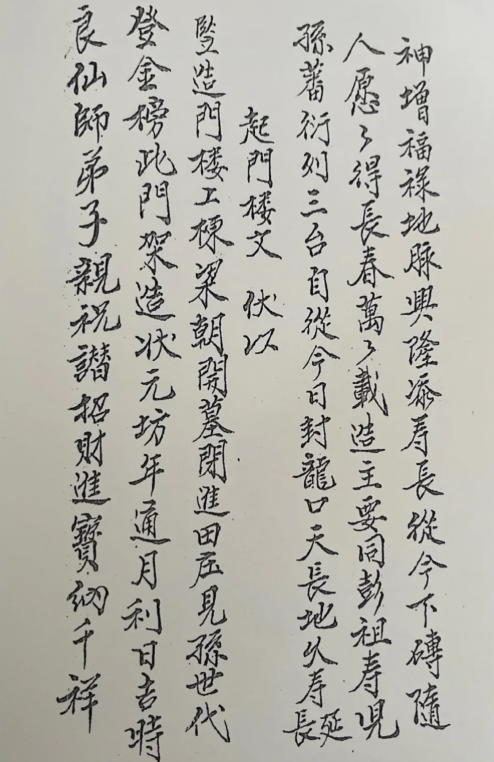 神增福禄地脉興隆添寿長從今下磚隨
人愿々得長春萬々載造主要同彭祖寿児
孫蕃衍列三台自從今日封龍口天長地久寿延長
起門楼文 伏以
竪造門楼工棟梁朝開墓閉進田庄見孫世代
登金榜此門架造状元坊年通月利日吉時
良仙師弟子親祝讃招財進寶納千祥